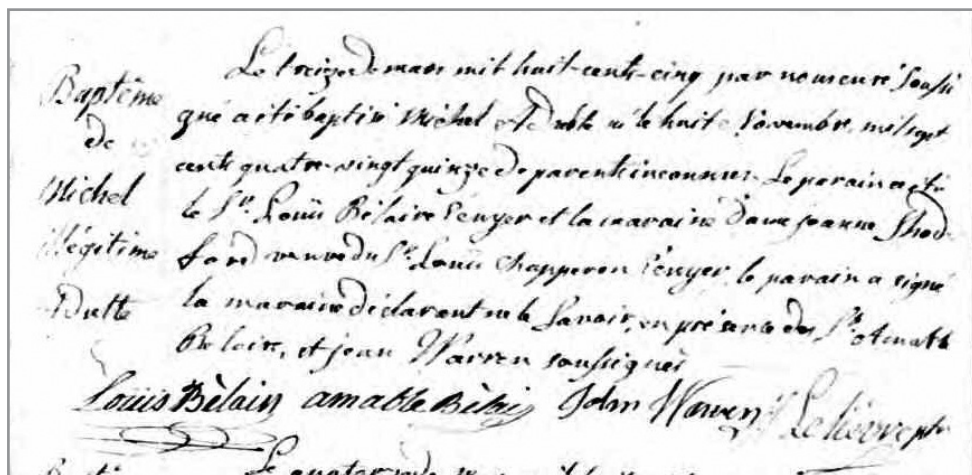 Baptême
de
Michel
illégitime
Adulte
Le treize de mars mil huit-cents-cinq par nous curé soussi
gné a été baptisé Michel Adulte né le huit Novembre mil sept
cents quatre-vingt quinze de parents inconnus. Le parain a été
le Sr. Louis Bélaire Ecuyer et la maraine dame jeanne Shod-
ford veuve du Sr. Louis Chapperon Ecuyer, le parain a signé
la maraine déclarant ne le Savoir, en présence des Srs Amable
Belaire, et jean Warren soussignés
Louis Bèlair amable Bèlair John Warren Lelièvre ptr
Le quator